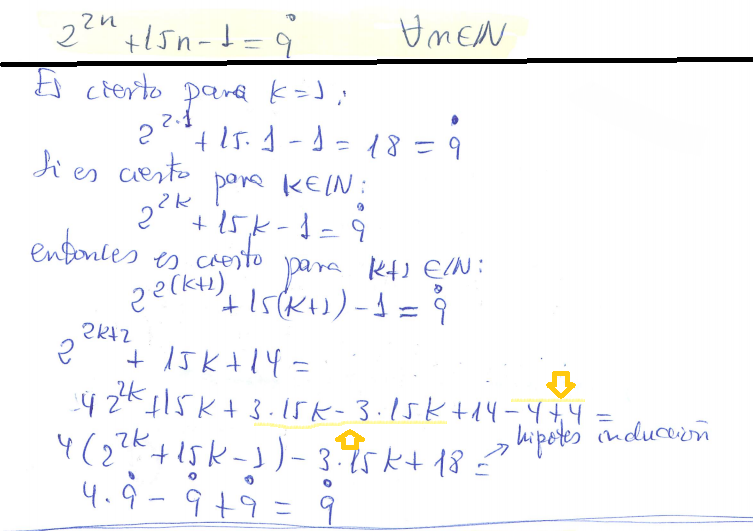 2^{2n} + 15n - 1 = 9̊ ∀n∈ℕ
Es cierto para k=1:
2^{2·1} + 15·1 - 1 = 18 = 9̊
Si es cierto para k∈ℕ:
2^{2k} + 15k - 1 = 9̊
entonces es cierto para k+1 ∈ℕ:
2^{2(k+1)} + 15(k+1) - 1 = 9̊
2^{2k+2} + 15k + 14 =
4 2^{2k} + 15k + 3·15k - 3·15k + 14 - 4 + 4 =
4(2^{2k} + 15k - 1) - 3·15k + 18 = → hipotes inducción
4·9̊ - 9̊ + 9̊ = 9̊